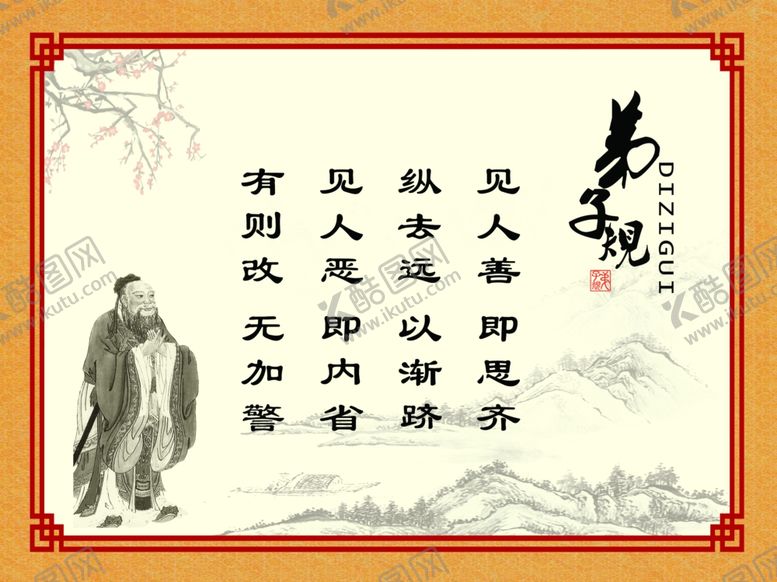 弟子规
DIZIGUI
见人善 即思齐
纵去远 以渐跻
见人恶 即内省
有则改 无加警
酷图网
www.ikutu.com